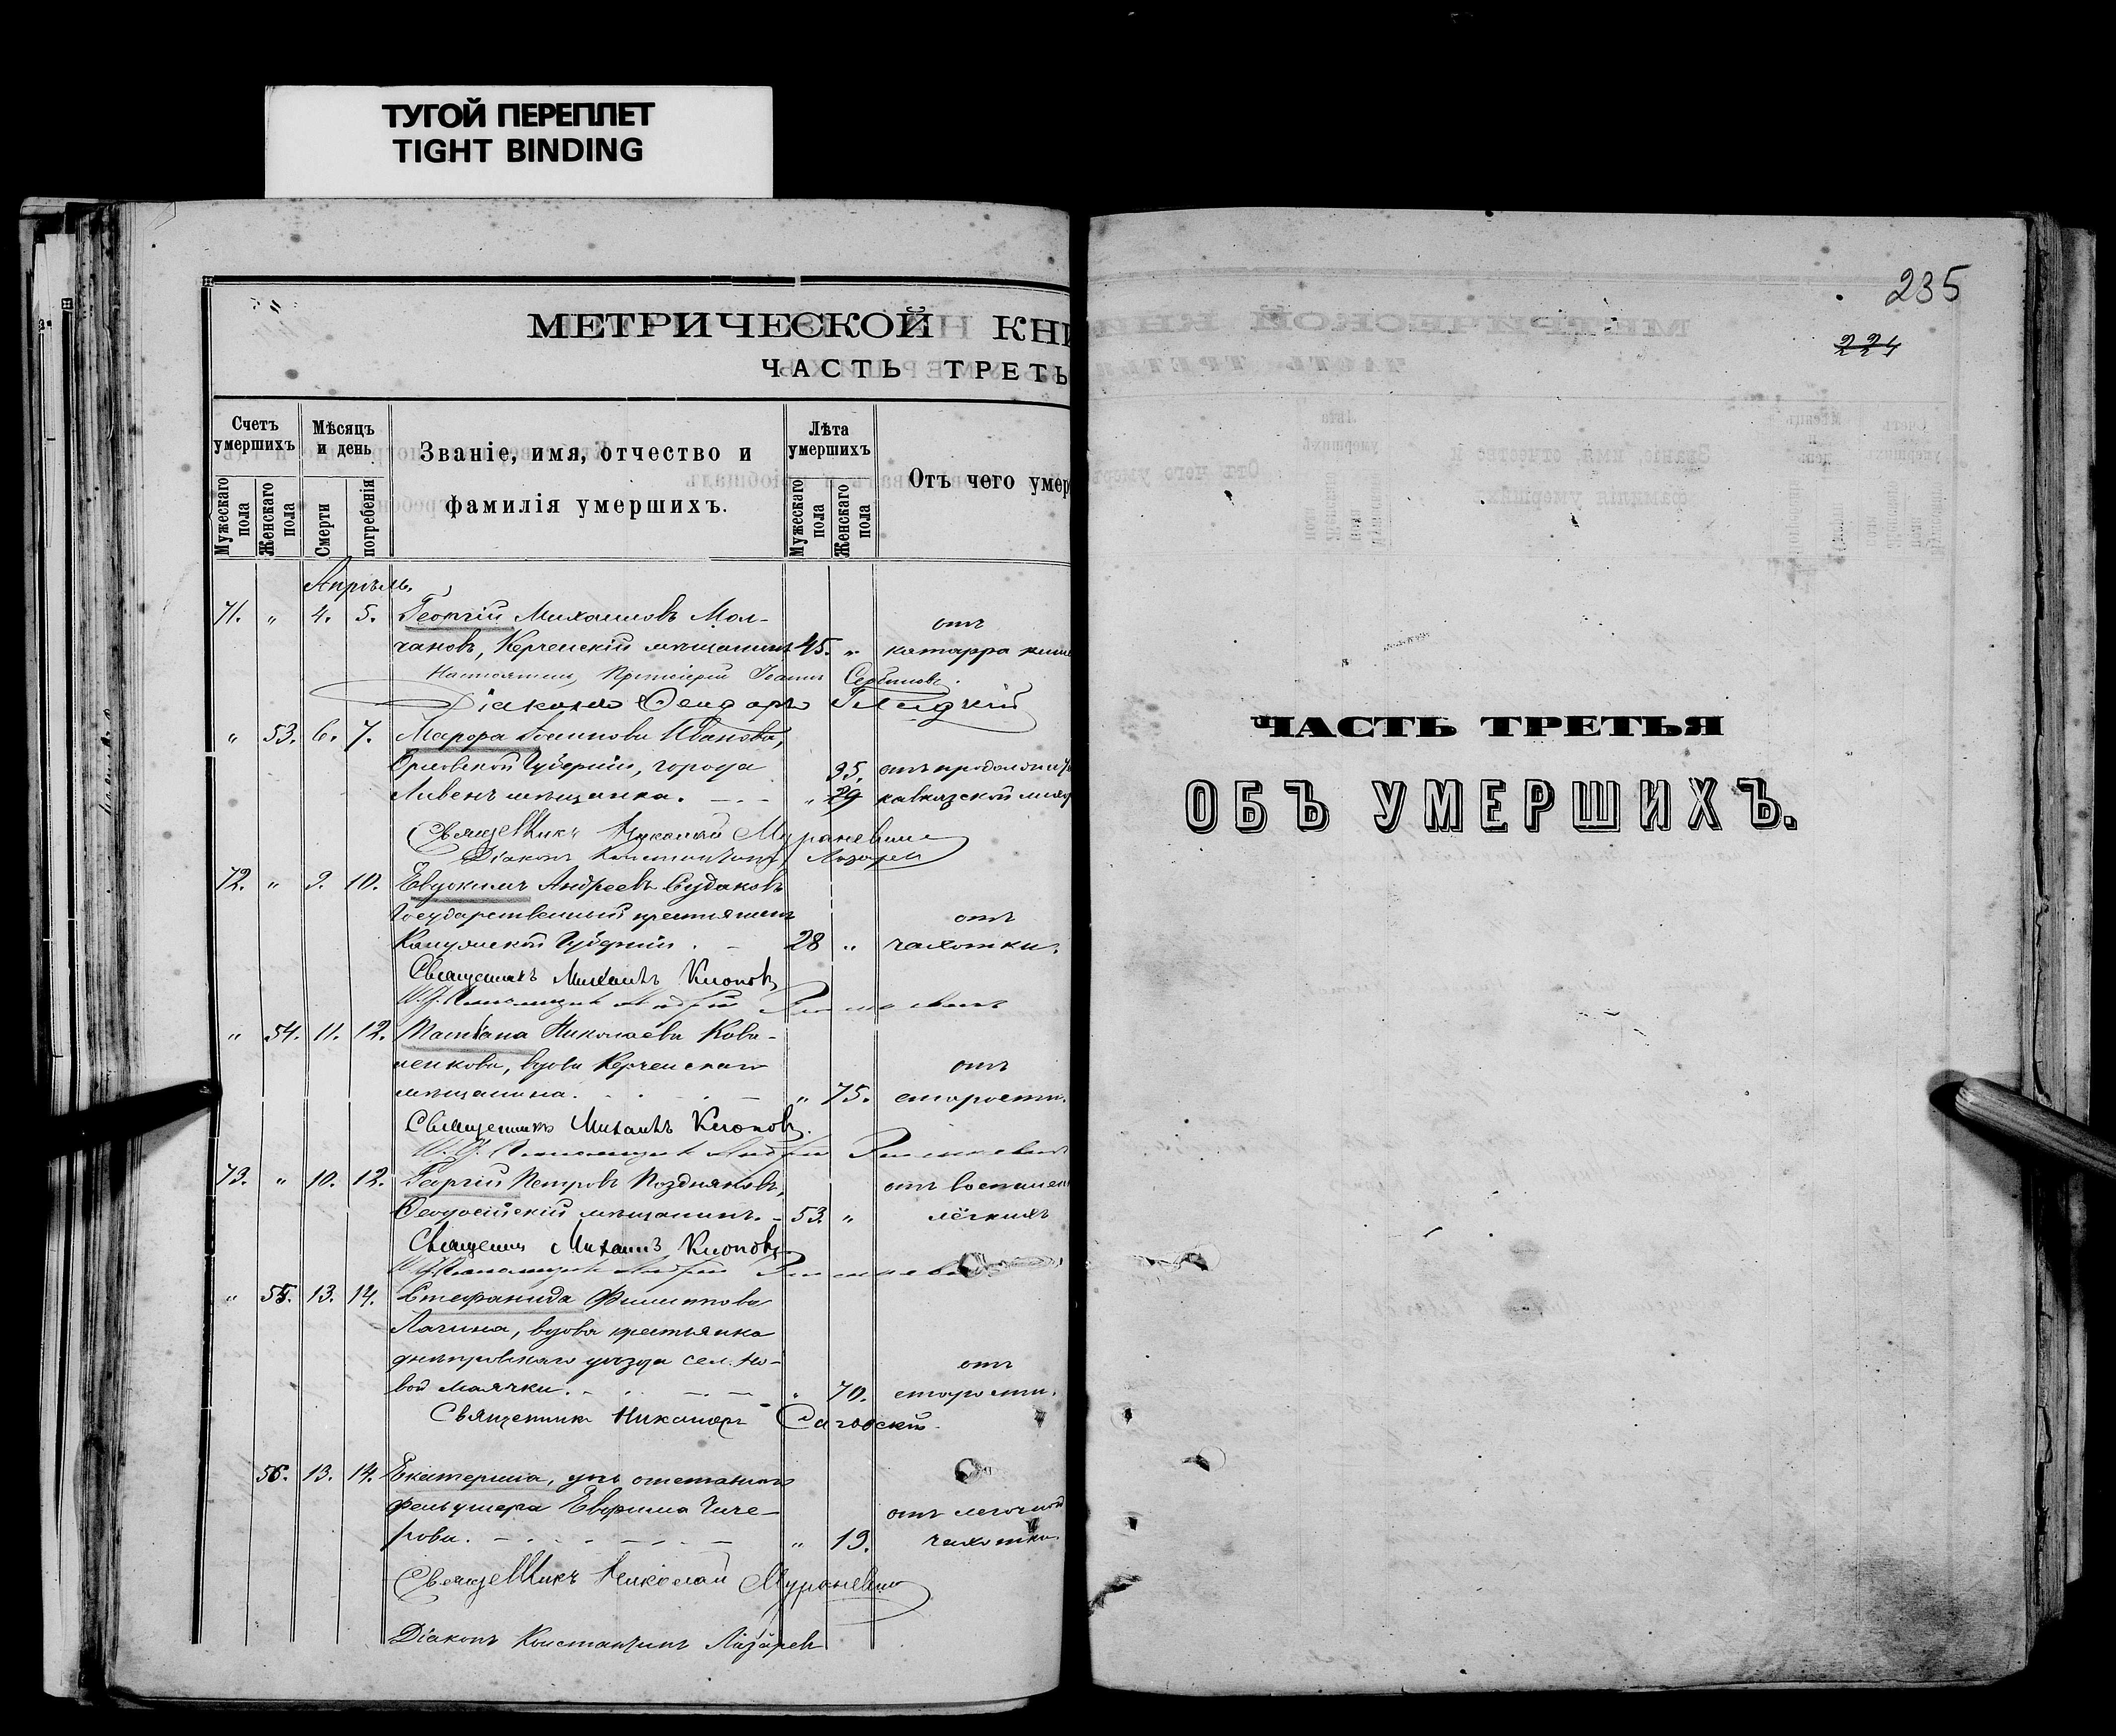 ТУГОЙ ПЕРЕПЛЕТ
TIGHT BINDING
МЕТРИЧЕСКОЙ КНИ
ЧАСТЬ ТРЕТЬ
Счетъ умершихъ
Мѣсяцъ и день
Званіе, имя, отчество и фамилія умершихъ.
Лѣта умершихъ
Отъ чего умер
Мужескаго пола
Женскаго пола
Смерти
погребенія
Мужескаго пола
Женскаго пола
Апрѣль.
71. " 4. 5. Георгій Михаиловъ Мол- отъ
чановъ, Керченскій мѣщанинъ 45. " катарра кише
Настоятель, Протоіерей Іоаннъ Сербиновъ.
Діаконъ Ѳеодоръ
" 53. 6. 7. Марѳа Іоаннова Иванова,
Орловской Губерніи, города 35. отъ
Ливенъ мѣщанка. " 29 кавказской
Священникъ Николай Мураневичъ
Діаконъ Константинъ Лазарев
72. " 9. 10. Евдокимъ Андреевъ Судаковъ
Государственный крестьянинъ отъ
Калужской Губерніи. 28 " чахотки.
Священникъ Михаилъ Клоповъ
И. Д. Псаломщика Андрей
" 54. 11. 12. Татіана Николаева Кова-
ленкова, вдова Керченскаго отъ
мѣщанина. " 75. старости.
Священникъ Михаилъ Клоповъ.
И. Д. Псаломщика Андрей
73. " 10. 12. Георгій Петровъ Поздняковъ, отъ воспален
Ѳеодосійскій мѣщанинъ. 53. " лёгкихъ
Священникъ Михаилъ Клоповъ
И. Д. Псаломщика Андрей
" 55. 13. 14. Стефанида Филиппова
Лачина, вдова крестьянка
днѣпровскаго уѣзда сел. Но- отъ
вой Маячки. " 70. старости.
Священникъ Никаноръ
56. 13. 14. Екатерина, дочь отставнаго
фельдшера Евфима Чиче- отъ легочной
рова. " 19. чахотки.
Священникъ Николай Мураневичъ
Діаконъ Константинъ Лазарев
235
224
ЧАСТЬ ТРЕТЬЯ
ОБЪ УМЕРШИХЪ.